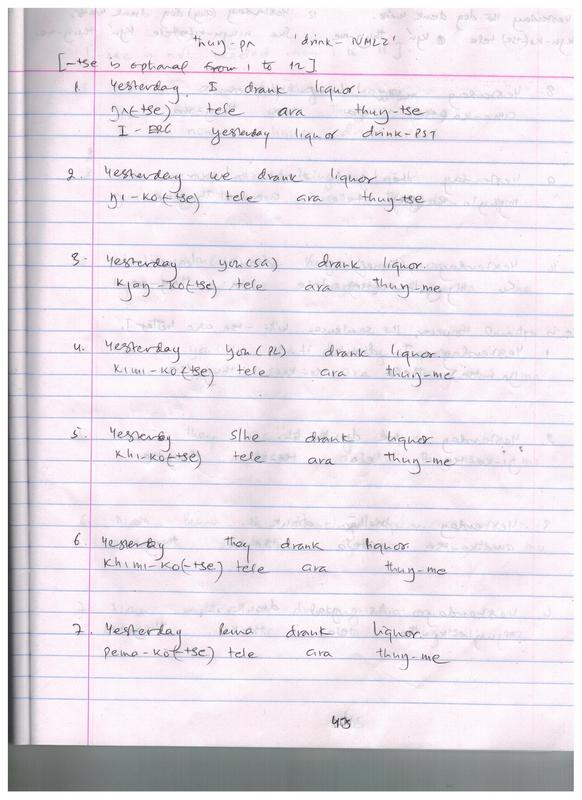 thuŋ-pʌ 'drink-NMLZ'
[-tse is optional from 1 to 12]
1. Yesterday, I drank liquor.
ŋʌ(-tse) tele ara thuŋ-tse
I-ERG yesterday liquor drink-PST
2. Yesterday we drank liquor
ŋi-ko(-tse) tele ara thuŋ-tse
3. Yesterday you(SG) drank liquor.
kjaŋ-ko(-tse) tele ara thuŋ-me
4. Yesterday you(PL) drank liquor.
kimi-ko(-tse) tele ara thuŋ-me
5. Yesterday s/he drank liquor
khi-ko(-tse) tele ara thuŋ-me
6. Yesterday they drank liquor.
khimi-ko(-tse) tele ara thuŋ-me
7. Yesterday Pema drank liquor.
pema-ko(-tse) tele ara thuŋ-me